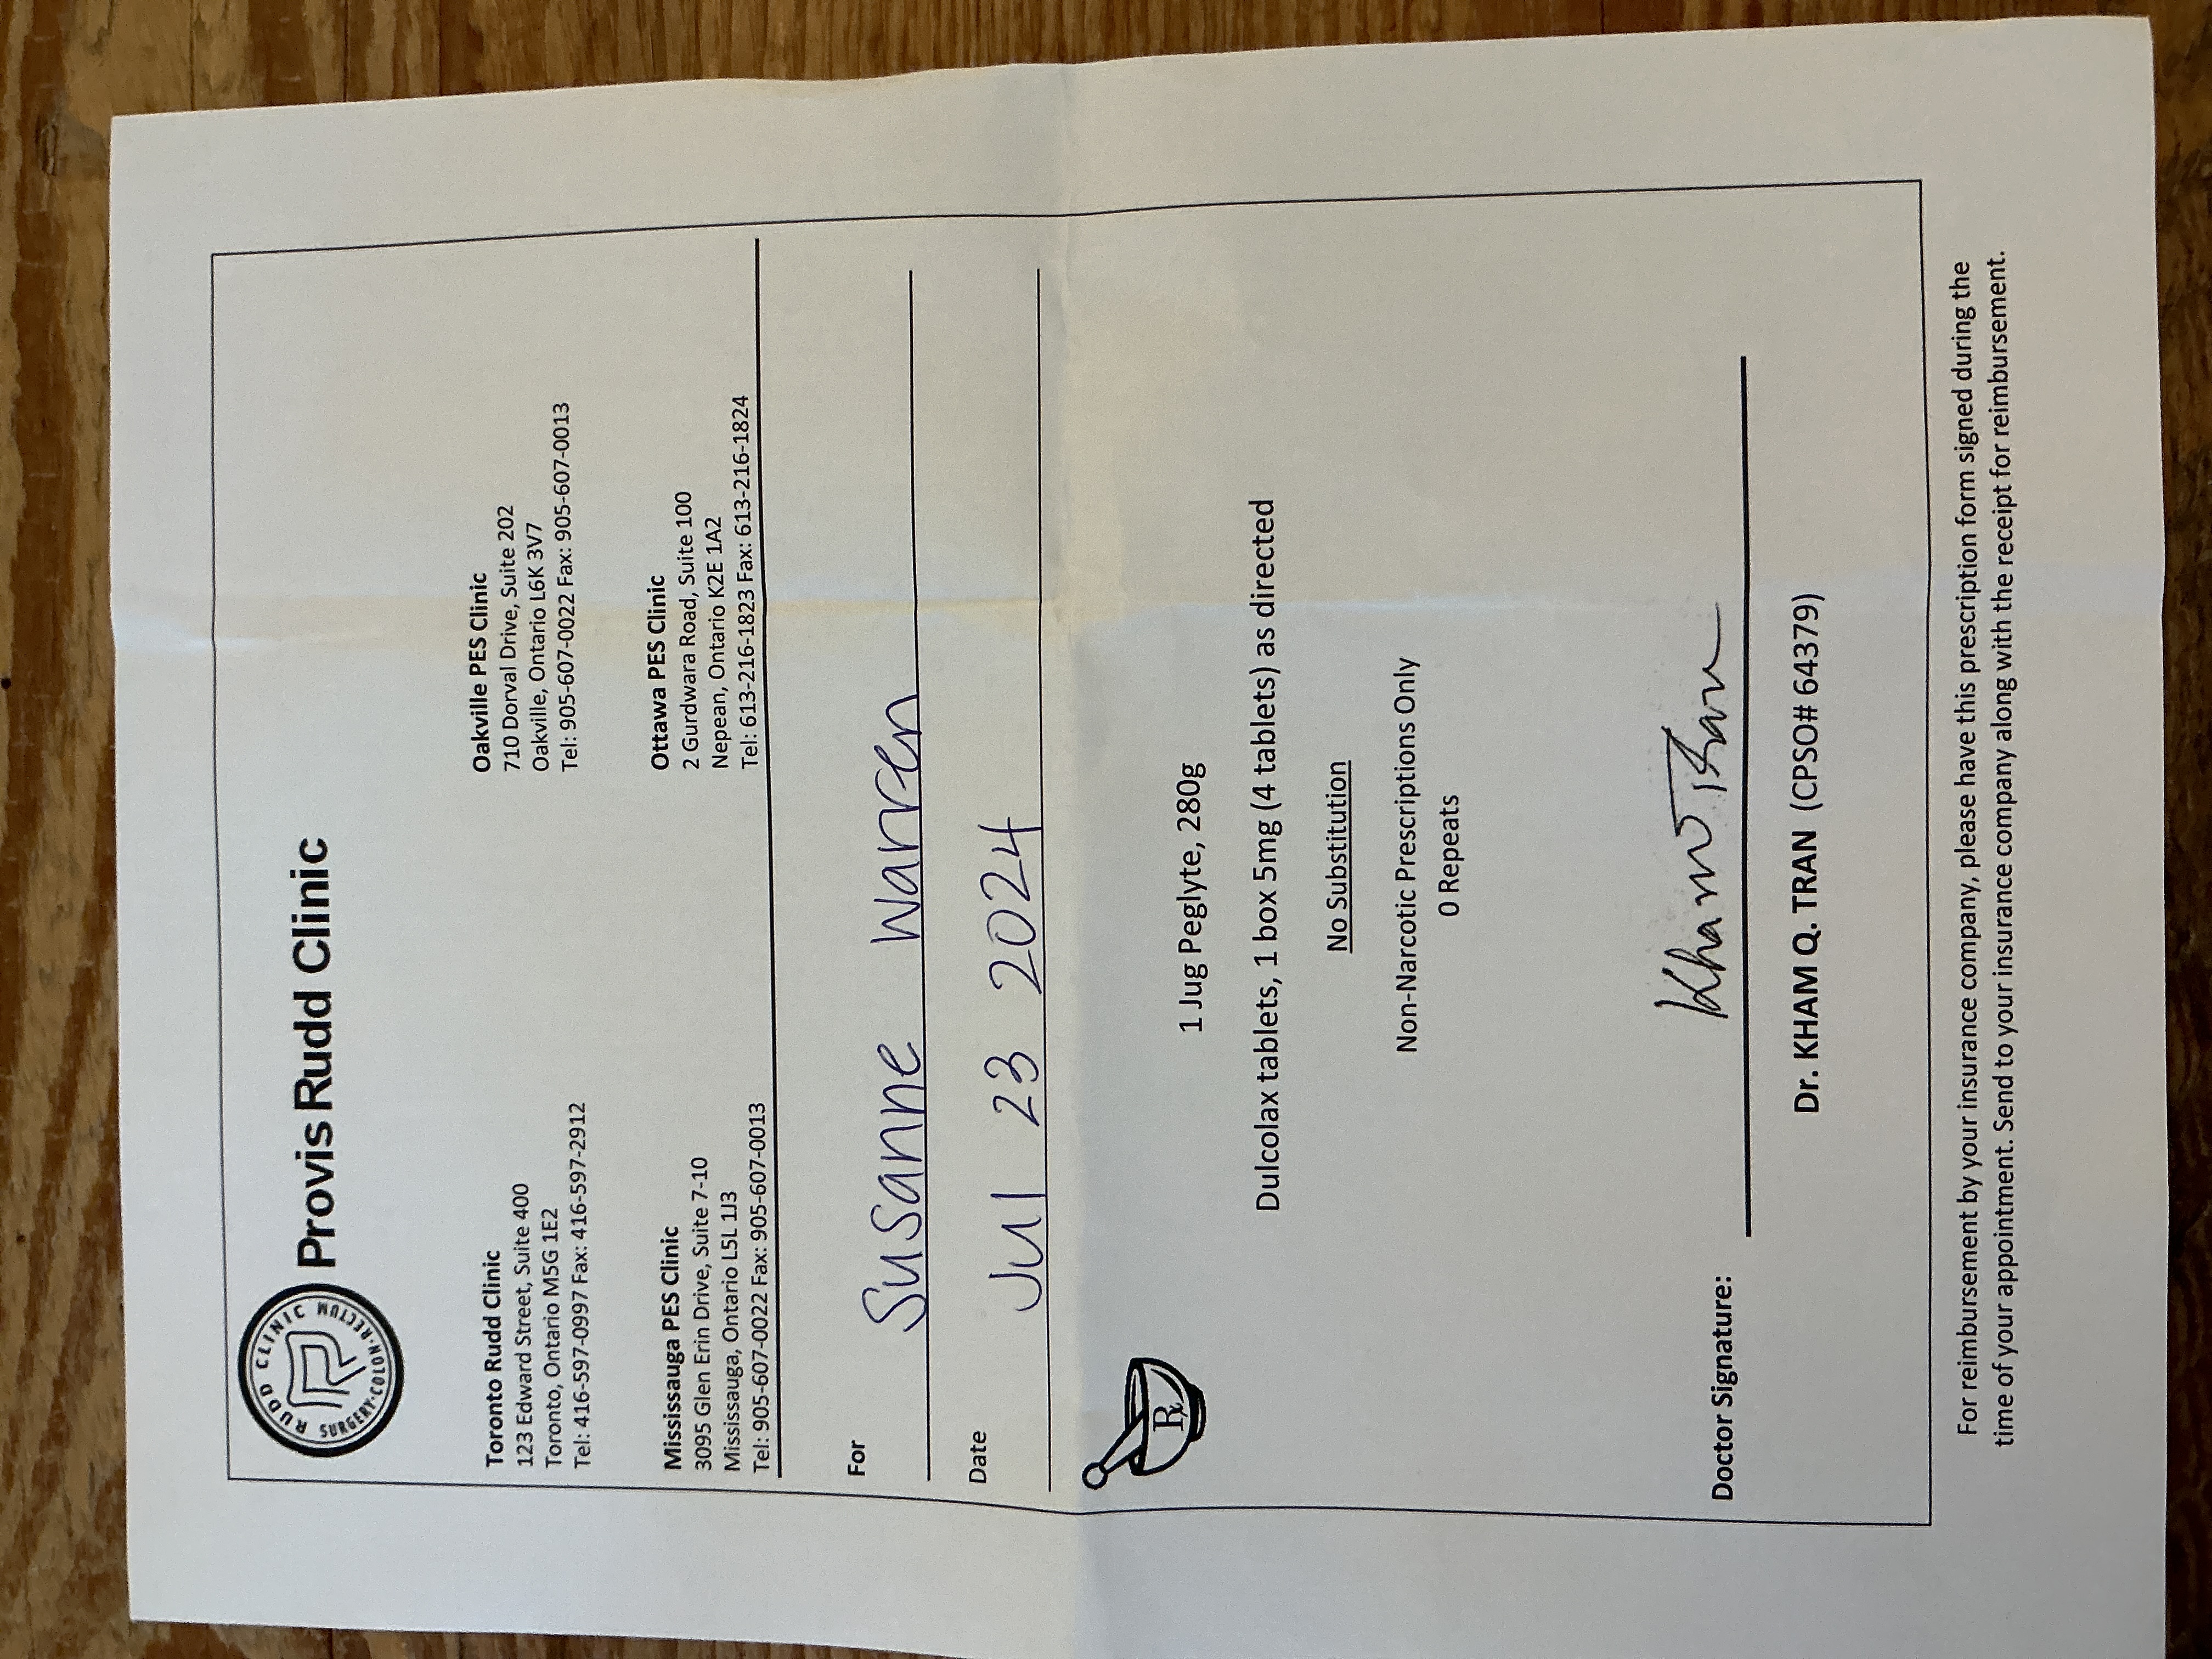 RUDD CLINIC
SURGERY·COLON·RECTUM
Provis Rudd Clinic
Toronto Rudd Clinic
123 Edward Street, Suite 400
Toronto, Ontario M5G 1E2
Tel: 416-597-0997 Fax: 416-597-2912
Oakville PES Clinic
710 Dorval Drive, Suite 202
Oakville, Ontario L6K 3V7
Tel: 905-607-0022 Fax: 905-607-0013
Mississauga PES Clinic
3095 Glen Erin Drive, Suite 7-10
Mississauga, Ontario L5L 1J3
Tel: 905-607-0022 Fax: 905-607-0013
Ottawa PES Clinic
2 Gurdwara Road, Suite 100
Nepean, Ontario K2E 1A2
Tel: 613-216-1823 Fax: 613-216-1824
For Susanne Warren
Date Jul 23 2024
℞
1 Jug Peglyte, 280g
Dulcolax tablets, 1 box 5mg (4 tablets) as directed
No Substitution
Non-Narcotic Prescriptions Only
0 Repeats
Doctor Signature: Kham Tran
Dr. KHAM Q. TRAN (CPSO# 64379)
For reimbursement by your insurance company, please have this prescription form signed during the
time of your appointment. Send to your insurance company along with the receipt for reimbursement.